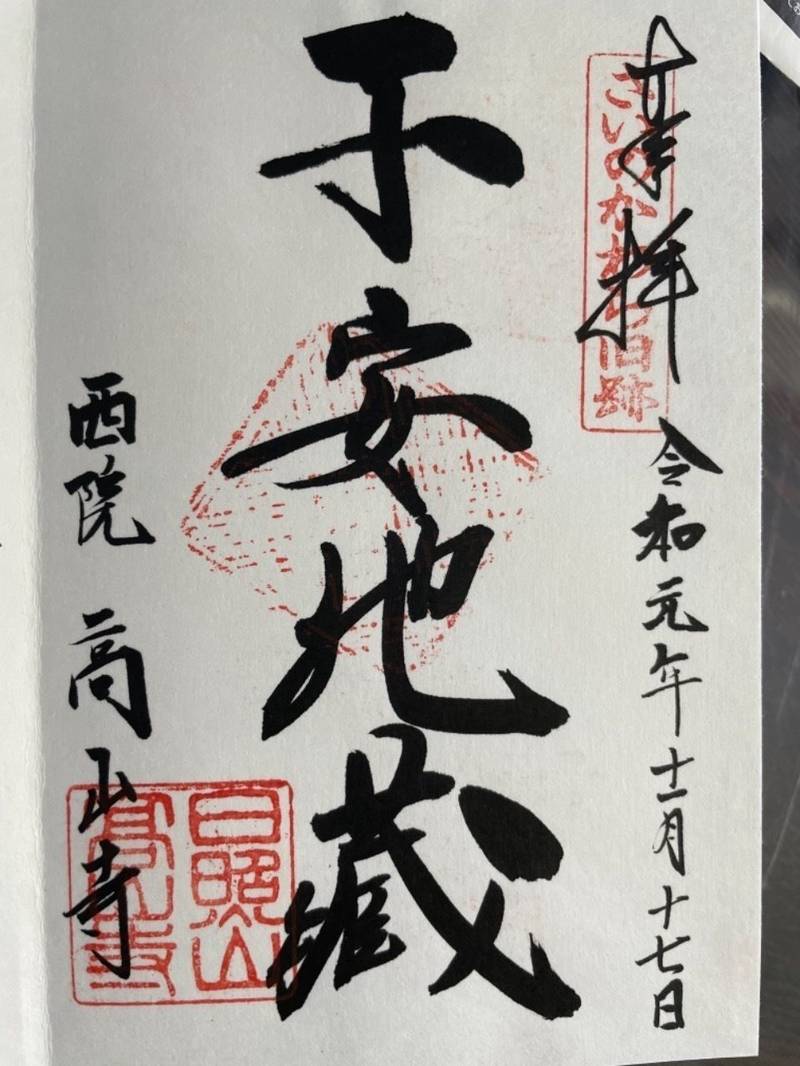 奉拝
さいのかわら旧跡
令和元年十一月十七日
子安地蔵
西院 高山寺
日照山
高山寺